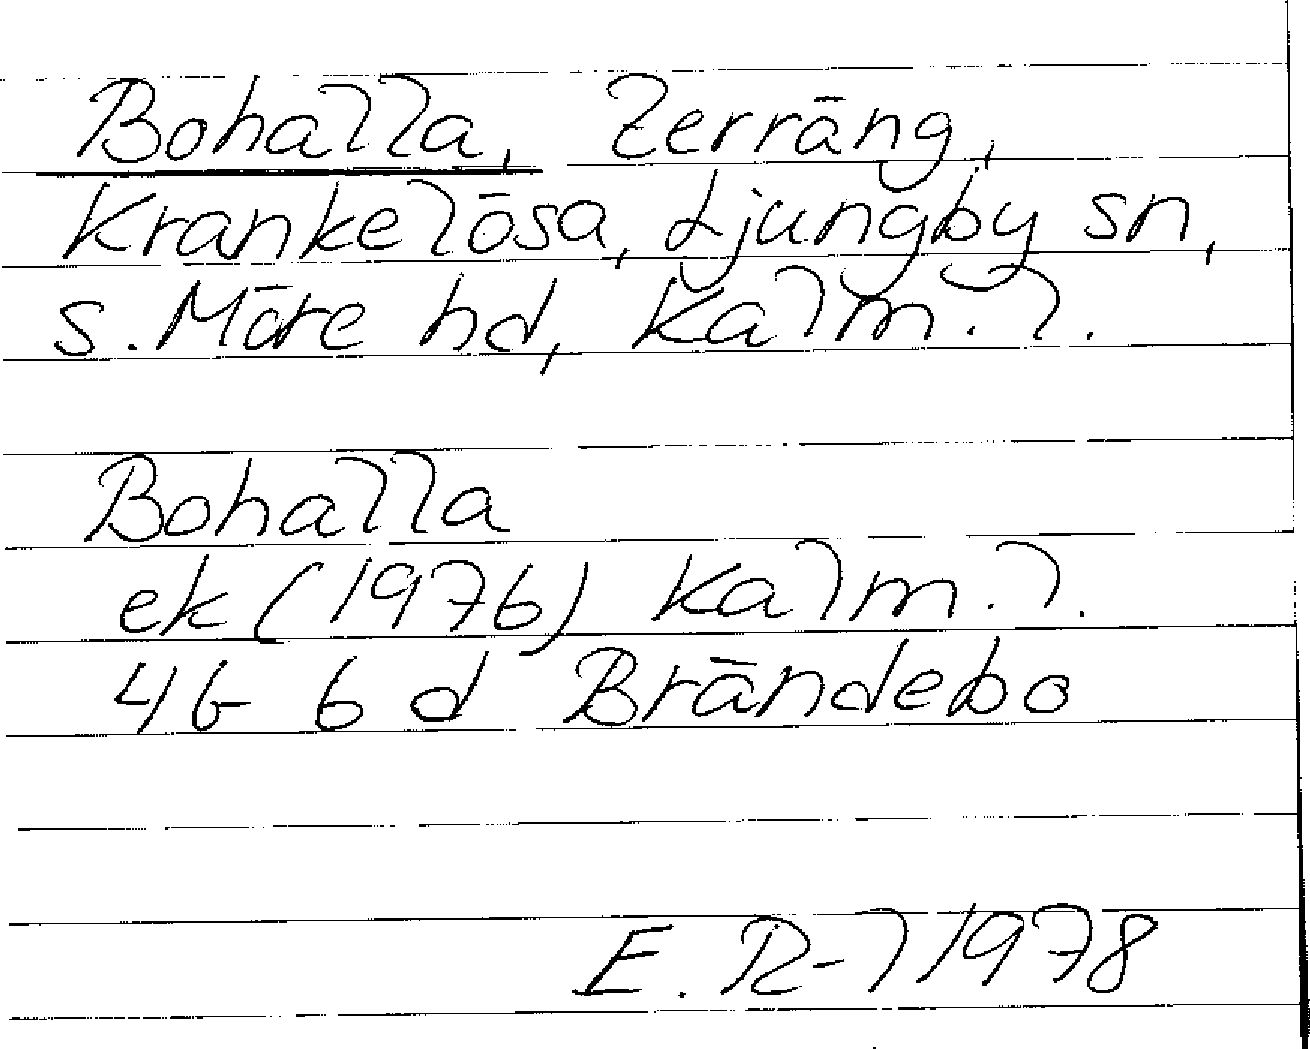 Bohalla, terräng,
Krankelösa, Ljungby sn,
S. Möre hd, Kalm. l.
Bohalla
ek (1976) Kalm. l.
4G 6 d Brändebo
E. R-l 1978